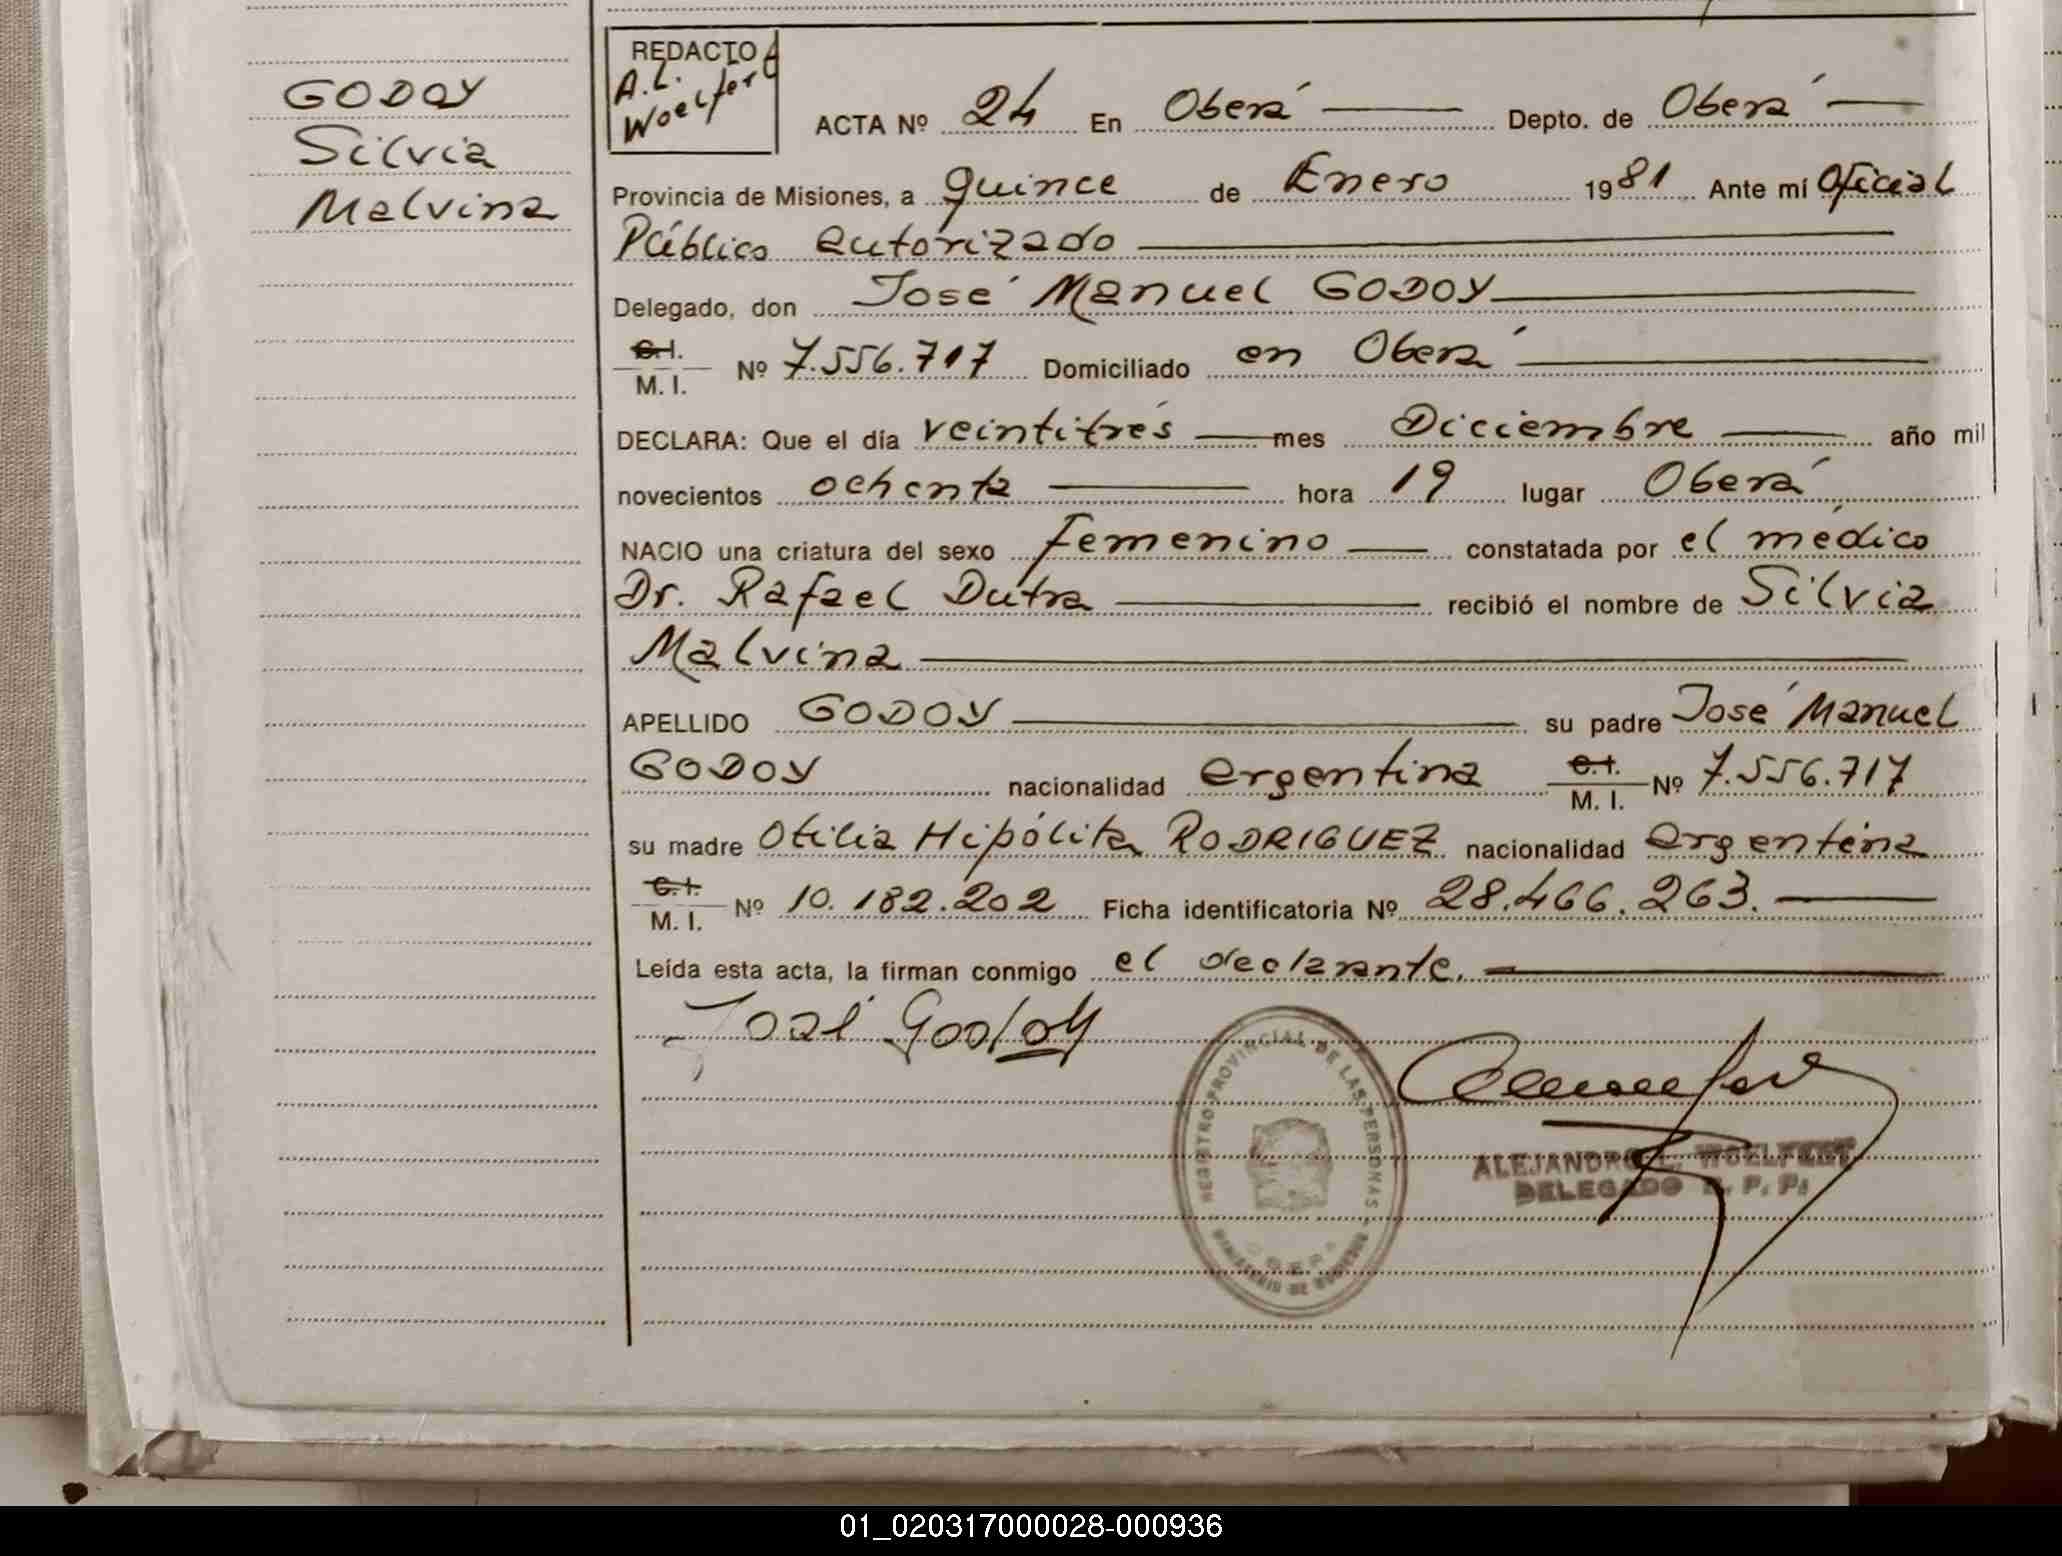 GODOY
Silvia
Malvina
REDACTO
A.L.
Woelfert
ACTA Nº 24 En Oberá Depto. de Oberá
Provincia de Misiones, a quince de Enero 1981 Ante mí Oficial
Público autorizado
Delegado, don José Manuel GODOY
C.I.
M. I. Nº 7.556.717 Domiciliado en Oberá
DECLARA: Que el día veintitrés mes Diciembre año mil
novecientos ochenta hora 19 lugar Oberá
NACIO una criatura del sexo femenino constatada por el médico
Dr. Rafael Dutra recibió el nombre de Silvia
Malvina
APELLIDO GODOY su padre José Manuel
GODOY nacionalidad argentina C.I.
M. I. Nº 7.556.717
su madre Otilia Hipólita RODRIGUEZ nacionalidad argentina
C.I.
M. I. Nº 10.182.202 Ficha identificatoria Nº 28.466.263.
Leída esta acta, la firman conmigo el declarante.
José Godoy
REGISTRO PROVINCIAL DE LAS PERSONAS
MINISTERIO DE GOBIERNO
ALEJANDRO L. WOELFERT
DELEGADO R. P. P.
01_020317000028-000936